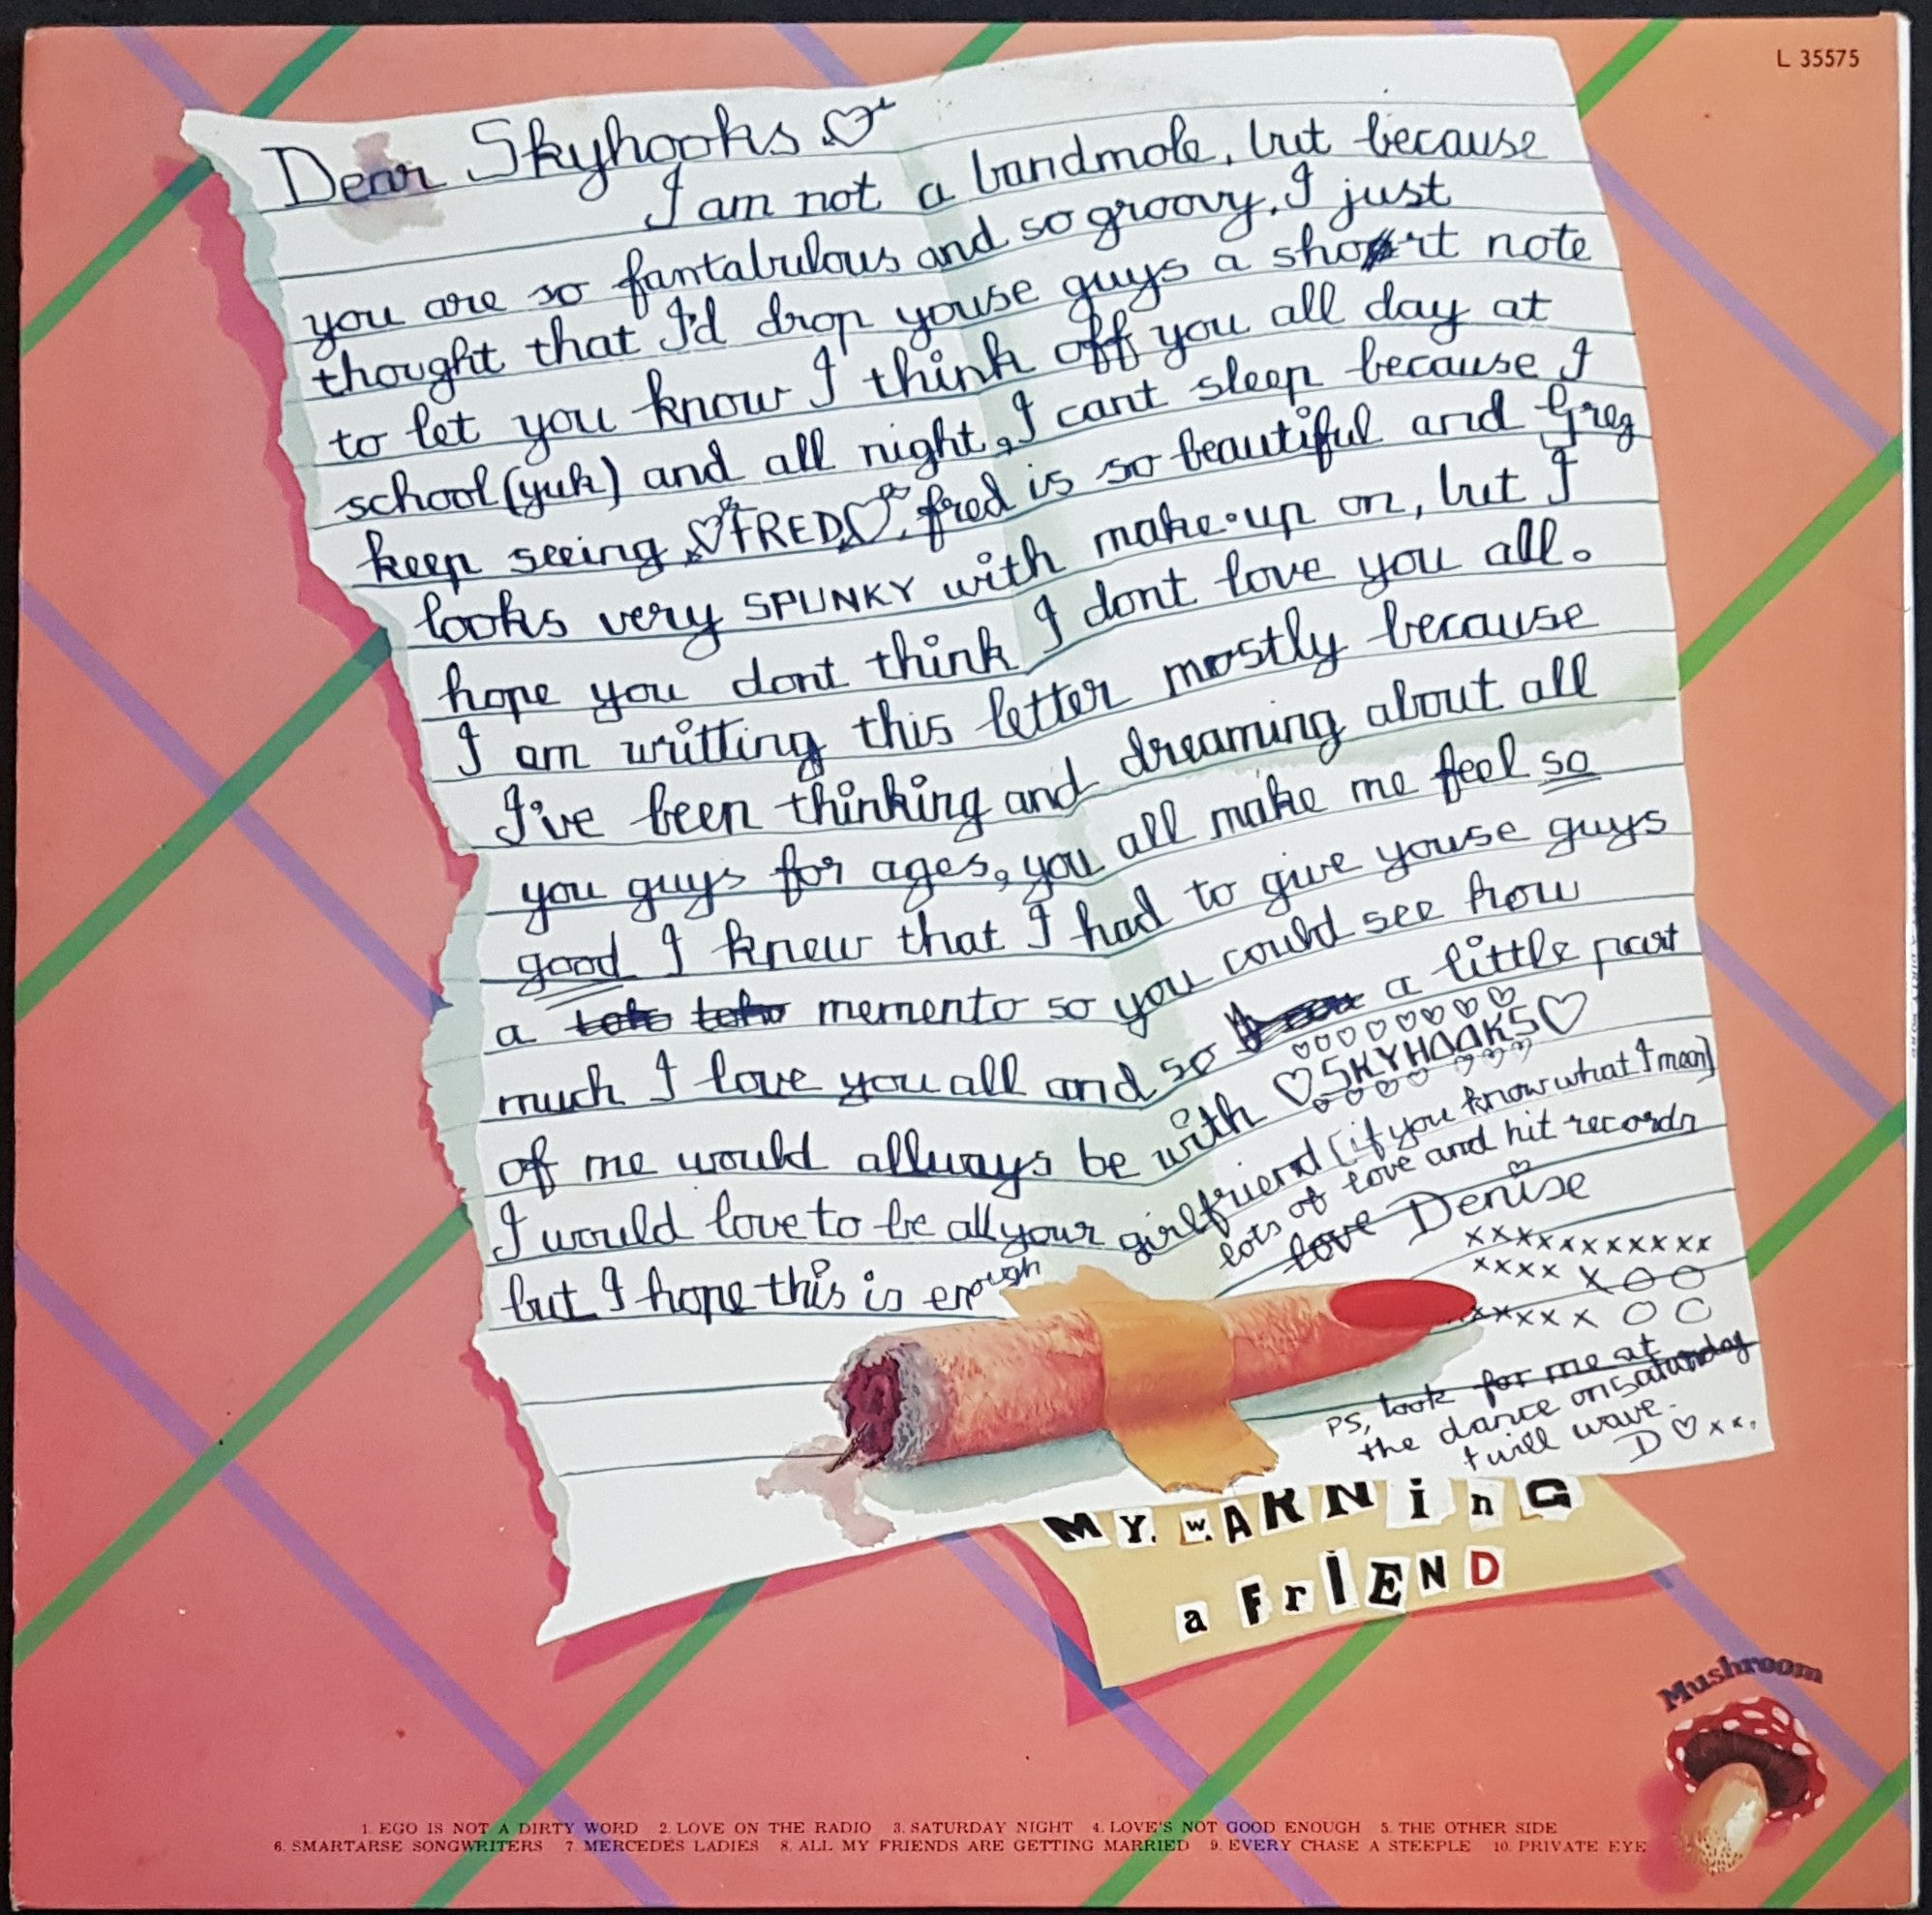 L 35575
Dear Skyhooks
I am not a bandmole, but because
you are so fantabulous and so groovy, I just
thought that I'd drop youse guys a short note
to let you know I think off you all day at
school (yuk) and all night, I cant sleep because I
keep seeing FRED. fred is so beautiful and Greg
looks very SPUNKY with make-up on, but I
hope you dont think I dont love you all.
I am writting this letter mostly because
I've been thinking and dreaming about all
you guys for ages, you all make me feel so
good I knew that I had to give youse guys
a memento so you could see how
much I love you all and so a little part
of me would allways be with SKYHOOKS
I would love to be all your girlfriend (if you know what I mean)
but I hope this is enough
lots of love and hit records
love Denise
xxxxxxxxxxxx
xxxx x O O
xxxxx x O O
PS, look for me at
the dance on saturday
I will wave.
D xx.
MY. w.ARNinG
a FrIEND
Mushroom
1. EGO IS NOT A DIRTY WORD 2. LOVE ON THE RADIO 3. SATURDAY NIGHT 4. LOVE'S NOT GOOD ENOUGH 5. THE OTHER SIDE
6. SMARTARSE SONGWRITERS 7. MERCEDES LADIES 8. ALL MY FRIENDS ARE GETTING MARRIED 9. EVERY CHASE A STEEPLE 10. PRIVATE EYE